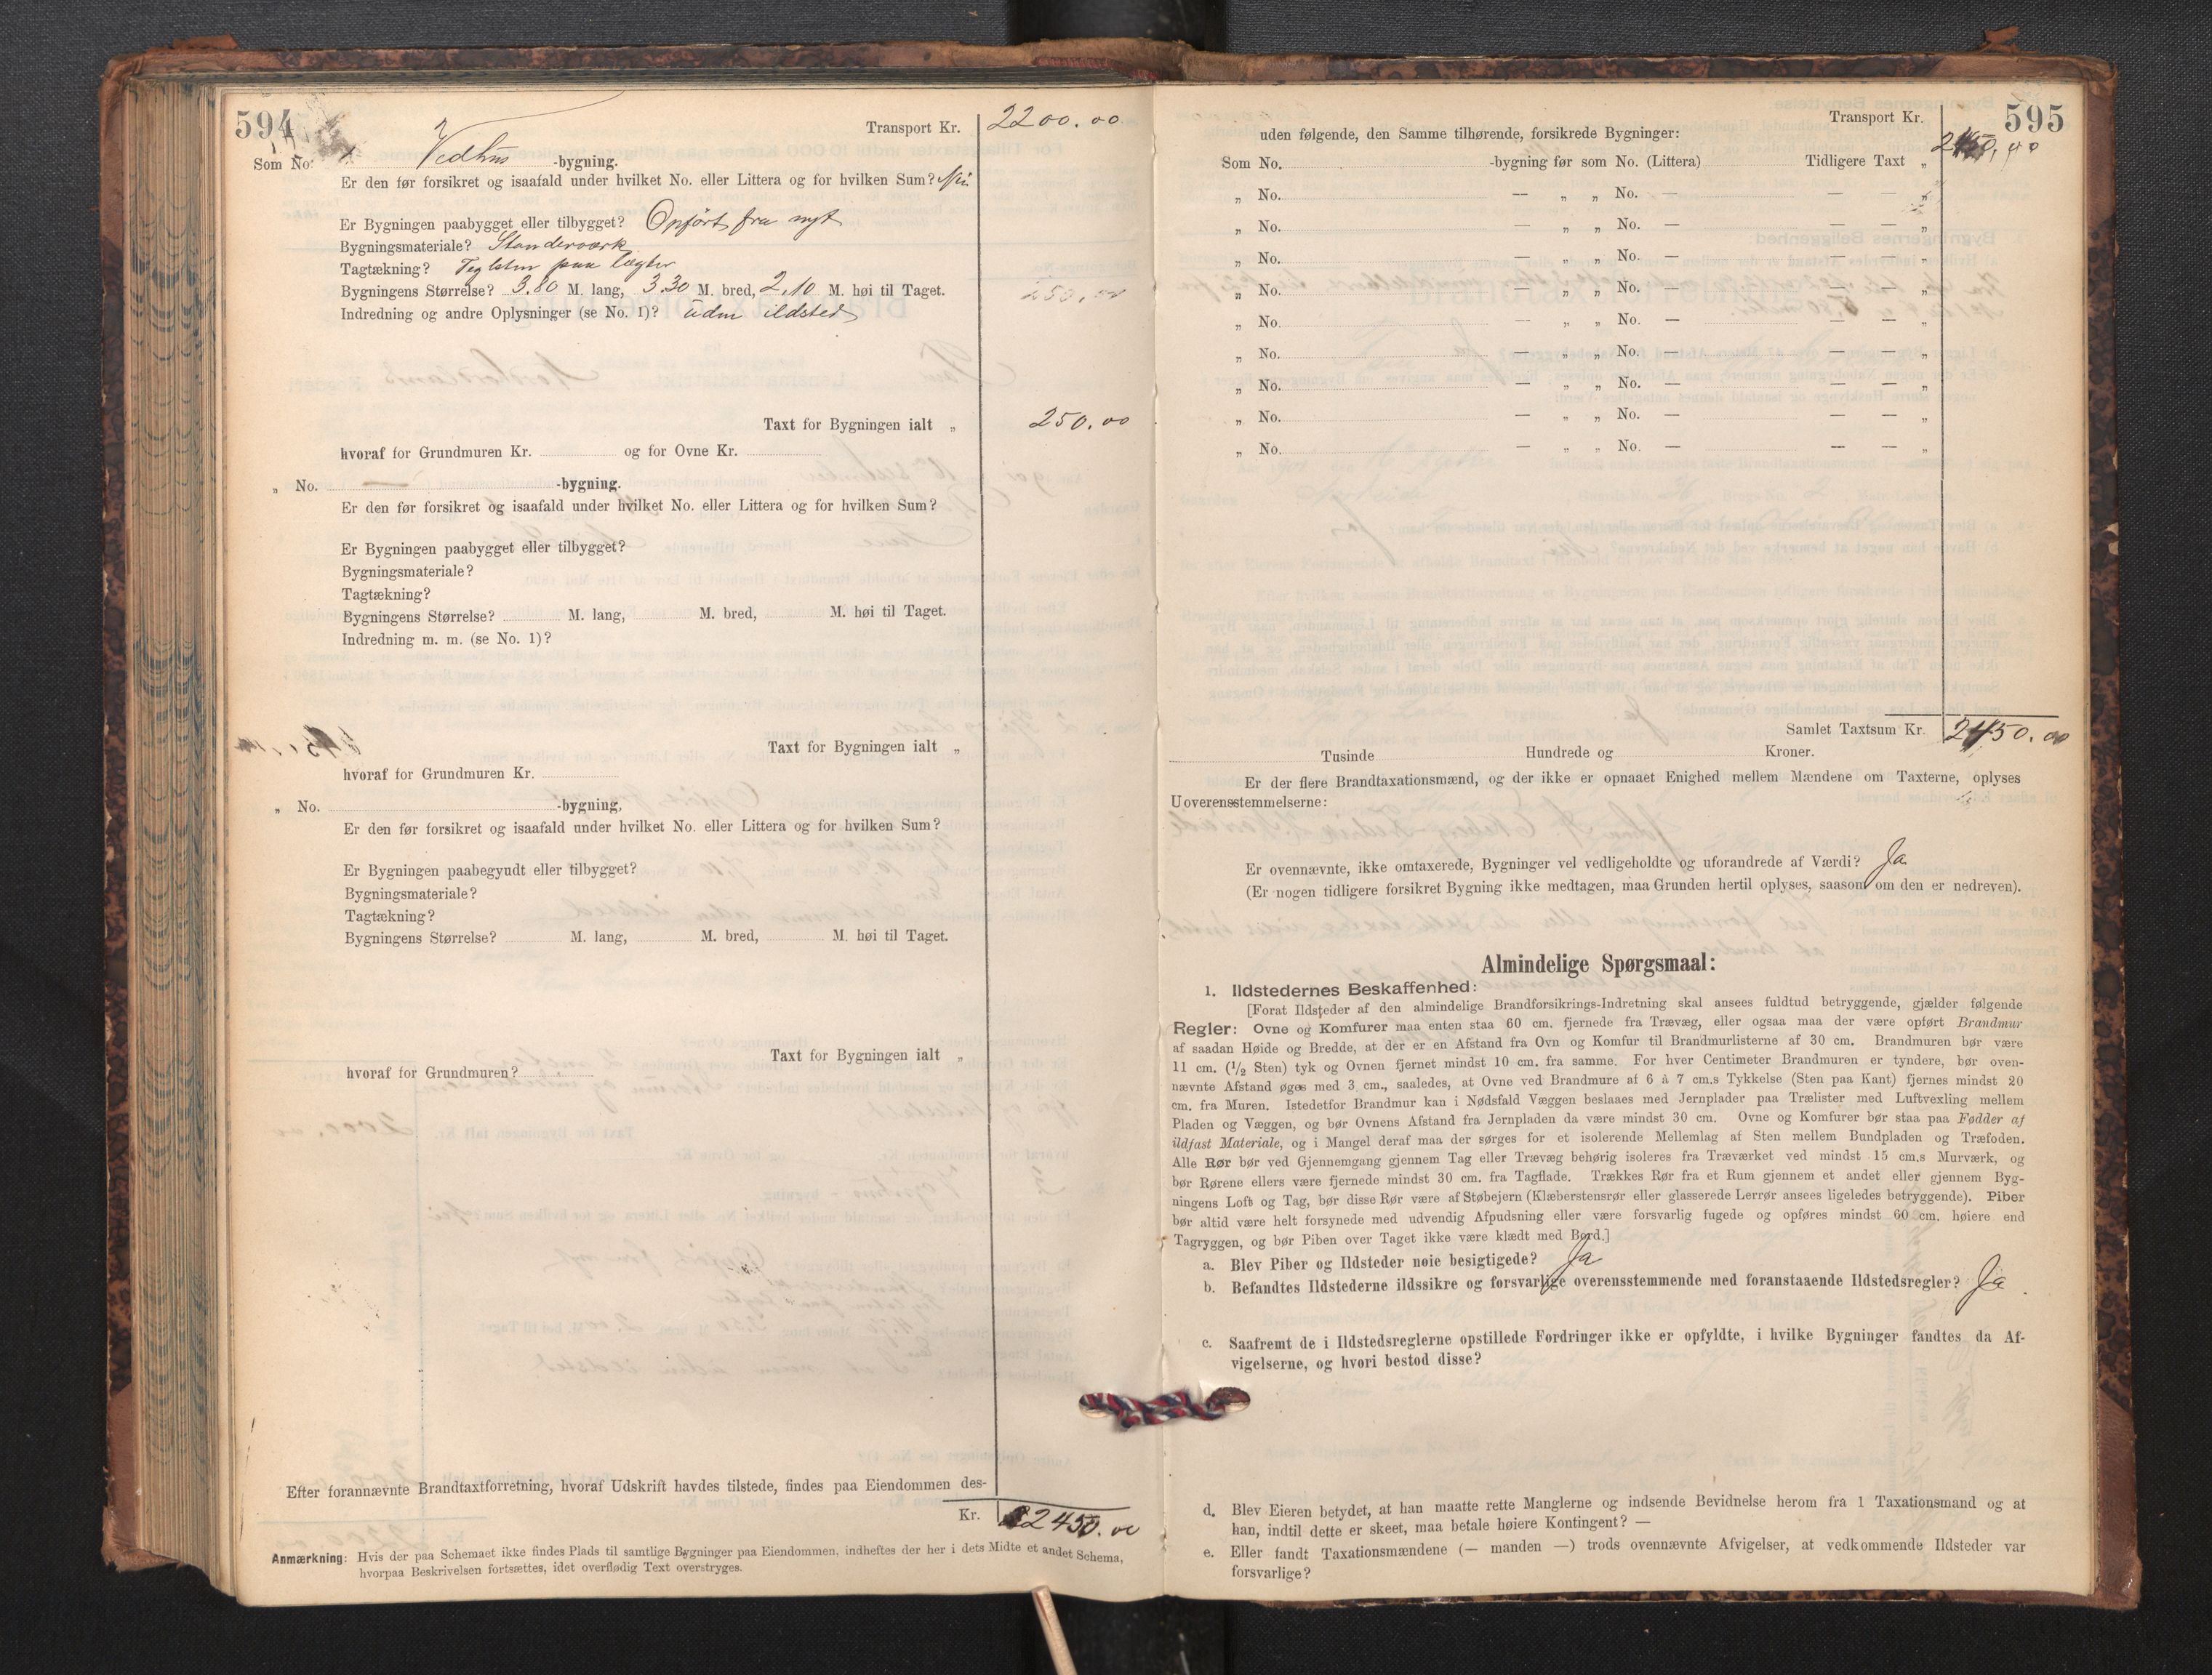 594
Transport Kr. 2200.00
Som No: Vedhus -bygning.
Er den før forsikret og isaafald under hvilket No. eller Littera og for hvilken Sum? Nei
Er Bygningen paabygget eller tilbygget? Opført fra nyt
Bygningsmateriale? Standerværk
Tagtækning? Teglsten paa lægter
Bygningens Størrelse? 3.80 M. lang, 3.30 M. bred, 2.10 M. høi til Taget. 250.00
Indredning og andre Oplysninger (se No. 1)? uden ildsted
Taxt for Bygningen ialt „ 250.00
hvoraf for Grundmuren Kr. og for Ovne Kr.
„ No. -bygning.
Er den før forsikret og isaafald under hvilket No. eller Littera og for hvilken Sum?
Er Bygningen paabygget eller tilbygget?
Bygningsmateriale?
Tagtækning?
Bygningens Størrelse? M. lang, M. bred, M. høi til Taget.
Indredning m. m. (se No. 1)?
Taxt for Bygningen ialt „
hvoraf for Grundmuren Kr.
„ No. -bygning,
Er den før forsikret og isaafald under hvilket No. eller Littera og for hvilken Sum?
Er Bygningen paabegyudt eller tilbygget?
Bygningsmateriale?
Tagtækning?
Bygningens Størrelse? M. lang, M. bred, M. høi til Taget.
Taxt for Bygningen ialt „
hvoraf for Grundmuren?
Efter forannævnte Brandtaxtforretning, hvoraf Udskrift havdes tilstede, findes paa Eiendommen des-
Kr. 2450.00
Anmærkning: Hvis der paa Schemaet ikke findes Plads til samtlige Bygninger paa Eiendommen, indheftes der her i dets Midte et andet Schema,
hvorpaa Beskrivelsen fortsættes, idet overflødig Text overstryges.
595
Transport Kr.
uden følgende, den Samme tilhørende, forsikrede Bygninger:
Som No. -bygning før som No. (Littera) Tidligere Taxt „
„ No. — „ „ No. — — — „
„ No. — „ „ No. — — — „
„ No. — „ „ No. — — — „
„ No. — „ „ No. — — — „
„ No. — „ „ No. — — — „
„ No. — „ „ No. — — — „
„ No. — „ „ No. — — — „
„ No. — „ „ No. — — — „
„ No. — „ „ No. — — — „
Samlet Taxtsum Kr. 2450.00
Tusinde Hundrede og Kroner.
Er der flere Brandtaxationsmænd, og der ikke er opnaaet Enighed mellem Mændene om Taxterne, oplyses
Uoverensstemmelserne:
Er ovennævnte, ikke omtaxerede, Bygninger vel vedligeholdte og uforandrede af Værdi? Ja
(Er nogen tidligere forsikret Bygning ikke medtagen, maa Grunden hertil oplyses, saasom om den er nedreven).
Almindelige Spørgsmaal:
1. Ildstedernes Beskaffenhed:
[Forat Ildsteder af den almindelige Brandforsikrings-Indretning skal ansees fuldtud betryggende, gjælder følgende
Regler: Ovne og Komfurer maa enten staa 60 cm. fjernede fra Trævæg, eller ogsaa maa der være opført Brandmur
af saadan Høide og Bredde, at der er en Afstand fra Ovn og Komfur til Brandmurlisterne af 30 cm. Brandmuren bør være
11 cm. (1/2 Sten) tyk og Ovnen fjernet mindst 10 cm. fra samme. For hver Centimeter Brandmuren er tyndere, bør oven-
nævnte Afstand øges med 3 cm., saaledes, at Ovne ved Brandmure af 6 à 7 cm.s Tykkelse (Sten paa Kant) fjernes mindst 20
cm. fra Muren. Istedetfor Brandmur kan i Nødsfald Væggen beslaaes med Jernplader paa Trælister med Luftvexling mellem
Pladen og Væggen, og bør Ovnens Afstand fra Jernpladen da være mindst 30 cm. Ovne og Komfurer bør staa paa Fødder af
ildfast Materiale, og i Mangel deraf maa der sørges for et isolerende Mellemlag af Sten mellem Bundpladen og Træfoden.
Alle Rør bør ved Gjennemgang gjennem Tag eller Trævæg behørig isoleres fra Træværket ved mindst 15 cm.s Murværk, og
bør Rørene ellers være fjernede mindst 30 cm. fra Tagflade. Trækkes Rør fra et Rum gjennem et andet eller gjennem Byg-
ningens Loft og Tag, bør disse Rør være af Støbejern (Klæberstensrør eller glasserede Lerrør ansees ligeledes betryggende). Piber
bør altid være helt forsynede med udvendig Afpudsning eller være forsvarlig fugede og opføres mindst 60 cm. høiere end
Tagryggen, og bør Piben over Taget ikke være klædt med Bord.]
a. Blev Piber og Ildsteder nøie besigtigede? Ja
b. Befandtes Ildstederne ildssikre og forsvarlige overensstemmende med foranstaaende Ildstedsregler? Ja
c. Saafremt de i Ildstedsreglerne opstillede Fordringer ikke er opfyldte, i hvilke Bygninger fandtes da Af-
vigelserne, og hvori bestod disse?
d. Blev Eieren betydet, at han maatte rette Manglerne og indsende Bevidnelse herom fra 1 Taxationsmand og at
han, indtil dette er skeet, maa betale høiere Kontingent? —
e. Eller fandt Taxationsmændene (— manden —) trods ovennævnte Afvigelser, at vedkommende Ildsteder var
forsvarlige?